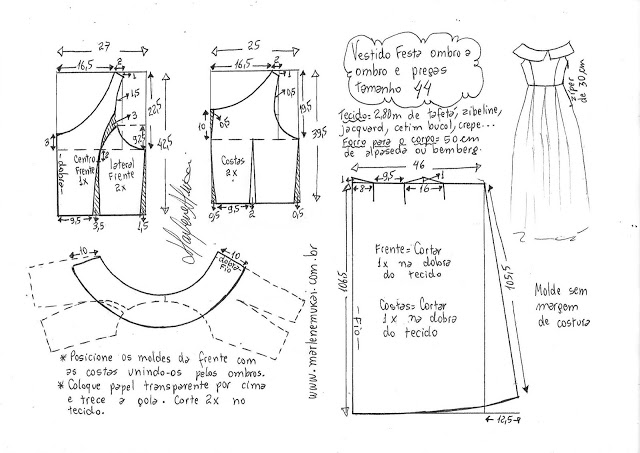 Vestido Festa ombro a
ombro e pregas
tamanho 44
Tecido: 2,80m de tafetá, zibeline,
jacquard, cetim bucol, crepe...
Forro para o corpo = 50 cm
de alpaseda ou bemberg.
zíper
de 30 cm
27
16,5
2
1
1,5
3
22,5
42,5
3
9,25
2
-dobra-
Centro
Frente
1x
lateral
Frente
2x
9,5
3,5
1,5
25
16,5
2
1
0,5
19,5
39,5
10
0,5
Costas
2x
0,5
9,5
2
0,5
10
10
dobra
Fio
* Posicione os moldes da frente com
as costas unindo-os pelos ombros.
* Coloque papel transparente por cima
e trece a gola. Corte 2x no
tecido.
www.marlenemukai.com.br
46
1
8
9,5
16
1
1065
105,5
Frente = Cortar
1x na dobra
do tecido
Costas = Cortar
1x na dobra
do tecido
-Fio-
12,5
Molde sem
margem
de costura